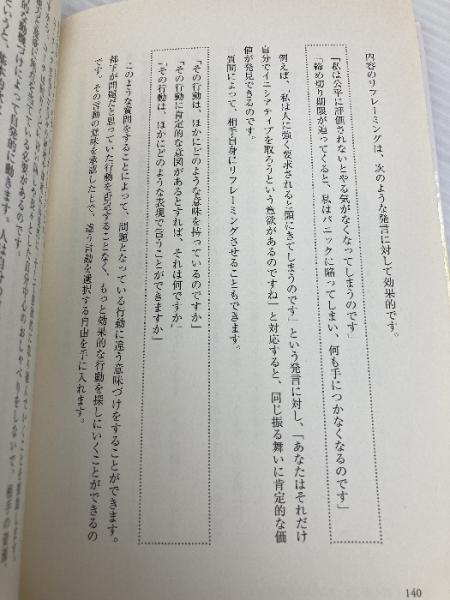 内容のリフレーミングは、次のような発言に対して効果的です。
「私は公平に評価されないとやる気がなくなってしまうのです」
「締め切り期限が迫ってくると、私はパニックに陥ってしまい、何も手につかなくなるのです」
例えば、「私は人に強く要求されると頭にきてしまうのです」という発言に対し、「あなたはそれだけ
自分でイニシアティブを取ろうという意欲があるのですね」と対応すると、同じ振る舞いに肯定的な価
値が発見できるのです。
質問によって、相手自身にリフレーミングさせることもできます。
「その行動は、ほかにどのような意味を持っているのですか」
「その行動に肯定的な意図があるとすれば、それは何ですか」
「その行動は、ほかにどのような表現で言うことができますか」
このような質問をすることによって、問題となっている行動に違う意味づけをすることができます。
相手が問題だと思っていた行動を否定することなく、もっと効果的な行動を探しにいくことができるの
です。その言動の意味を承認したことで、違う言動を選択する自由を手に入れます。
140